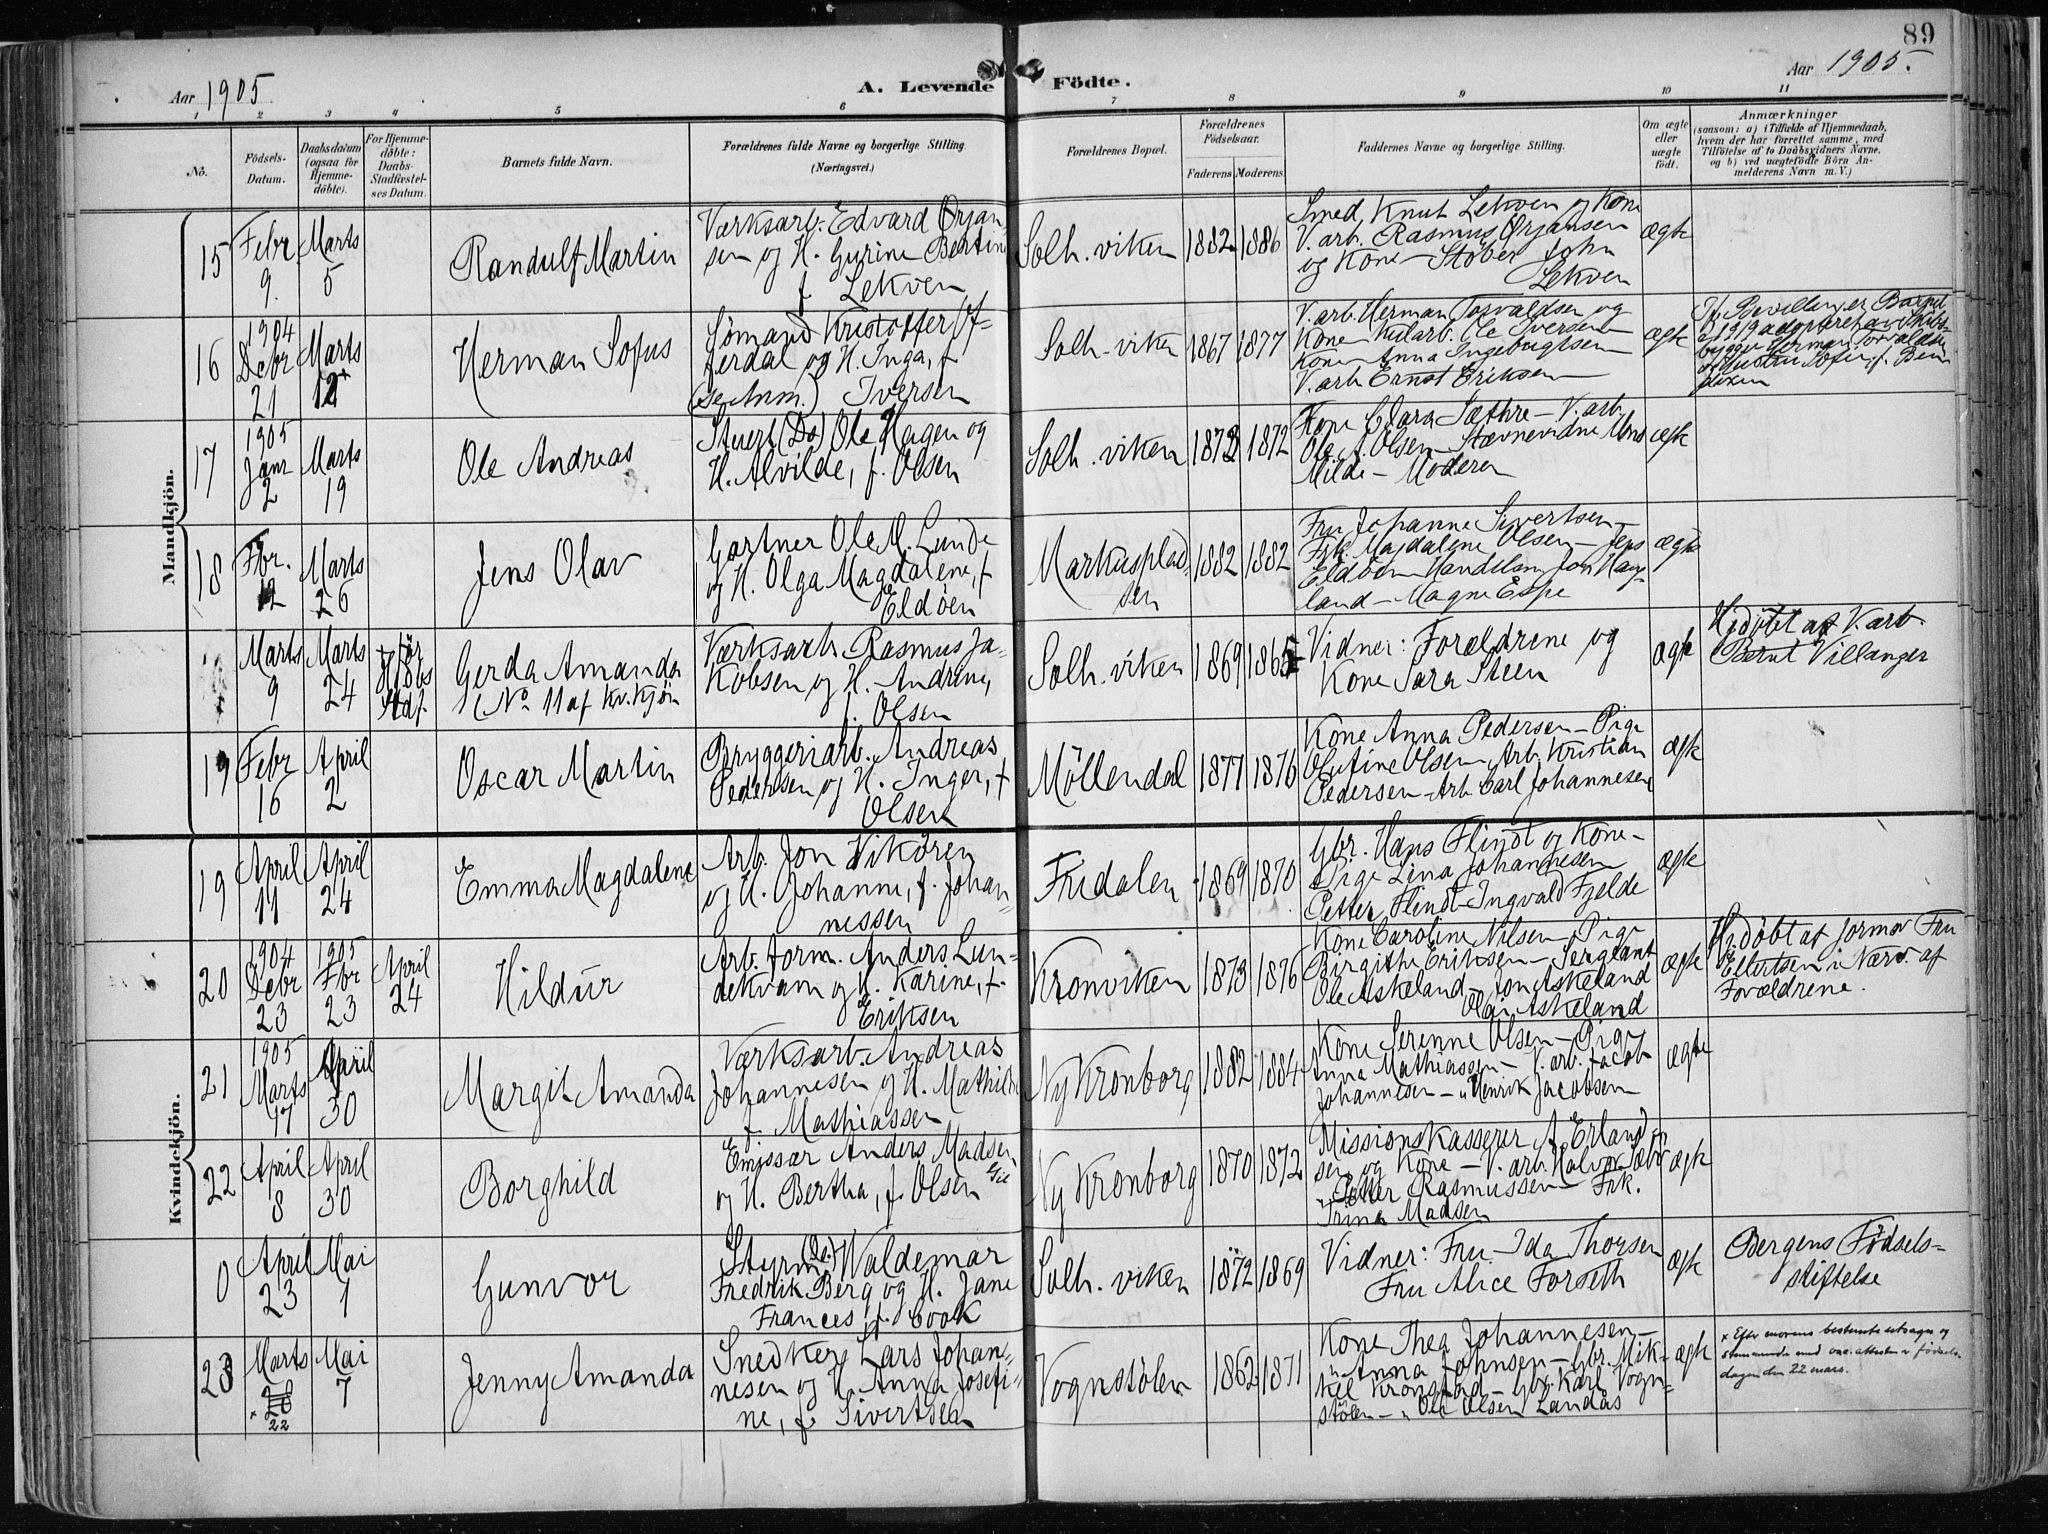 89
Aar 1905
A. Levende Födte.
Aar 1905.
1 2 3 4 5 6 7 8 9 10 11
No.
Födsels-
Datum.
Daabsdatum
(ogsaa for
Hjemme-
döbte).
For Hjemme-
döbte:
Daabs-
Stadfæstel-
ses Datum.
Barnets fulde Navn.
Forældrenes fulde Navne og borgerlige Stilling.
(Næringsvei.)
Forældrenes Bopæl.
Forældrenes
Födselsaar.
Faderens Moderens
Faddernes Navne og borgerlige Stilling.
Om ægte
eller
uægte
födt.
Anmærkninger
(saasom: a) i Tilfælde af Hjemmedaab,
hvem der har forrettet samme, med
Tilföielse af to Daabsvidners Navne,
og b) ved uægtefödte Börn An-
melderens Navn m. V.)
Mandkjön.
15
Febr.
9.
Marts
5
Randulf Martin
Værksarb. Edvard Ørjan
sen og H. Gurine Bertine
f. Lekven
Solh.viken
1882 1886
Smed Knut Lekven og Kone
V.arb. Rasmus Ørjansen
og Kone - Støber John
Lekven
ægte
16
1904
Debr
21
Marts
12
Herman Sofus
Sømand Kristoffer Uf-
ferdal og H. Inga, f.
(se Anm.) Iversen
Solh.viken
1867 1877
V.arb. Herman Torvaldsen og
Kone Ole Iversen
Kone Anna Ingebrigtsen
V.arb Ernst Eriksen
ægte
If. Bevilling er Barnet
1919 adopteret av Skibs-
bygger Herman Torvaldsen
og Hustru Sofie, f.
17
1905
Janr
2
Marts
19
Ole Andreas
Stuert (Ds) Ole Hagen og
H. Alvilde, f. Olsen
Solh.viken
1873 1872
Kone Clara Sæthre - V.arb.
Ole A. Olsen - Stævnevidne Mons
Milde - Moderen
ægte
18
Fbr.
12
Marts
26
Jens Olav
Gartner Ole M. Lunde
og H. Olga Magdalene, f.
Eldöen
Markusplad-
sen
1882 1882
Fru Johanne Sivertsen -
Frk. Magdalene Olsen - Jens
Eldöen Handelsm. Jon Haug-
land - Magne Espe
ægte
Marts
9
Marts
24
för
Stdf.
Gerda Amanda
(No 11 af Kv.kjön
Værksarb. Rasmus Ja-
kobsen og H. Andrine,
f. Olsen
Solh.viken
1869 1865
Vidner: Forældrene og
Kone Sara Steen
ægte
Hjdöbt af V.arb.
Bernt Villanger
19
Febr
16
April
2
Oscar Martin
Bryggeriarb. Andreas
Pedersen og H. Inger, f.
Olsen
Möllendal
1871 1876
Kone Anna Pedersen - Pige
Olufine Olsen, Arb. Kristian
Pedersen - Arb. Carl Johannesen
ægte
Kvindekjön.
19
April
11
April
24
Emma Magdalene
Arb. Jon Vikören
og H. Johanne, f. Johan-
nessen
Fridalen
1869 1870
Gbr. Hans Flindt og Kone -
Pige Lina Johannesen
Petter Flindt - Ingvald Fjelde
ægte
20
1904
Debr
23
1905
Fbr
23
April
24
Hildur
Arb.form. Anders Lun-
dekvam og H. Karine, f.
Eriksen
Kronviken
1873 1876
Kone Caroline Nilsen - Pige
Birgithe Eriksen - Sergeant
Ole Askeland - Jon Askeland
Olai Askeland
ægte
Hjdöbt af Jormor Fru
Ellertsen i Nærv. af
Forældrene.
21
1905
Marts
17
April
30
Margit Amanda
Værksarb. Andreas
Johannesen og H. Mathilde
f. Mathiassen
Ny Kronborg
1882 1884
Kone Serenne Olsen - Pige
Anna Mathiassen - V.arb. Jacob
Johannesen - " Henrik Jacobsen
ægte
22
April
8
April
30
Borghild
Emissær Anders Madsen
og H. Bertha, f. Olsen
Ny Kronborg
1870 1872
Missionskasserer A. Erland-
sen og Kone - V.arb. Halvor Sæbö
" Petter Rasmussen - Frk.
Trina Madsen
ægte
0
April
23
Mai
1
Gunvor
Styrm. (Ds.) Waldemar
Fredrik Berg og H. Jane
Frances f. Cook
Solh.viken
1872 1869
Vidner: Fru Ida Thorsen
Fru Alice Forseth
ægte
Bergens Fødsels-
stiftelse
23
Marts
× 22
Mai
7
Jenny Amanda
Snedker Lars Johan-
nesen og H. Anna Josefi-
ne, f. Sivertsen
Vognstölen
1862 1871
Kone Thea Johannesen -
" Anna Johnsen - Gbr. Mik-
kel Kronstad - Gbr Karl Vogn-
stölen - " Ole Olsen Landås
ægte
× Efter morens bestemte utsagn og
stemmende med vac.attesten er fødsels-
dagen den 22 mars.